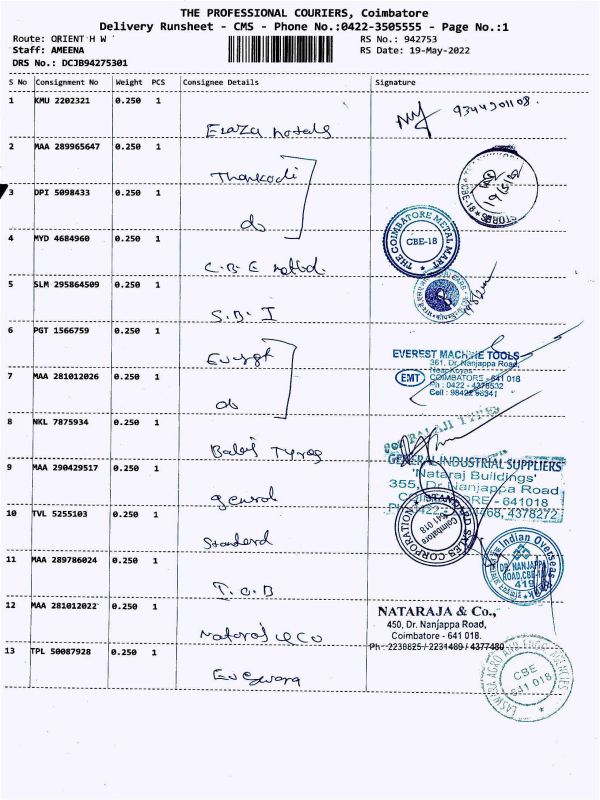 THE PROFESSIONAL COURIERS, Coimbatore
Delivery Runsheet - CMS - Phone No.:0422-3505555 - Page No.:1
Route: ORIENT H W
RS No.: 942753
Staff: AMEENA
RS Date: 19-May-2022
DRS No.: DCJB94275301
S No Consignment No Weight PCS Consignee Details Signature
1 KMU 2202321 0.250 1
9344901108.
hotels
2 MAA 289965647 0.250 1
CBE-18
19/5/22
3 DPI 5098433 0.250 1
do
THE COIMBATORE METAL MART
CBE-18
4 MYD 4684960 0.250 1
C.B.E
5 SLM 295864509 0.250 1
S.B.I
6 PGT 1566759 0.250 1
EVEREST MACHINE TOOLS
361, Dr. Nanjappa Road,
Near Kovos
EMT
COIMBATORE - 641 018
Ph : 0422 - 4378532
Cell : 98422 98341
7 MAA 281012026 0.250 1
do
8 NKL 7875934 0.250 1
BALAJI TYRES
Balaji Tyres
9 MAA 290429517 0.250 1
GENERAL INDUSTRIAL SUPPLIERS
'Nataraj Buildings'
355, Dr. Nanjappa Road
Coimbatore - 641018
4378272
general
10 TVL 5255103 0.250 1
STANDARD SALES CORPORATION
Coimbatore
641 018
Standard
11 MAA 289786024 0.250 1
Indian Overseas Bank
DR. NANJAPPA
ROAD, CBE-18
419
I.O.B
12 MAA 281012022 0.250 1
NATARAJA & Co.,
450, Dr. Nanjappa Road,
Coimbatore - 641 018.
Ph - 2230825 / 2231489 / 4377480
Nataraj & Co
13 TPL 50087928 0.250 1
EASWARA AGRO AND ENGG AGENCIES
CBE
641 018
Eveswara